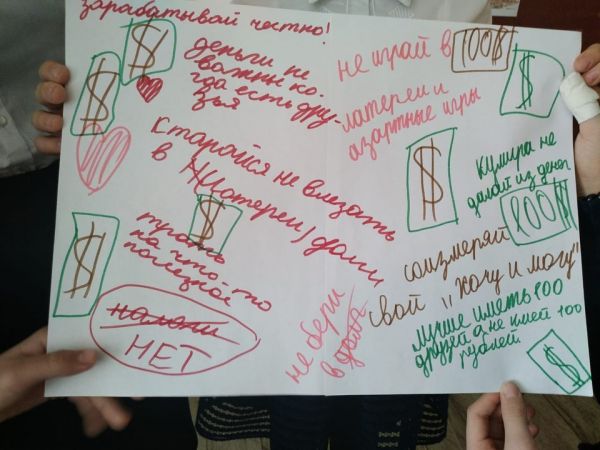 зарабатывай честно!
$
деньги не
важны ко-
гда есть дру-
зья
$
Старайся не влезать
в
$
трать
на что-то
полезное
$
налоги
НЕТ
не бери
в долг
не играй в
100$
латереи и
азартные игры
$
$
Кумира не
делай из денег
100$
соизмеряй
свой „хочу и могу"
лучше иметь 100
друзей а не имей 100
рублей.
$